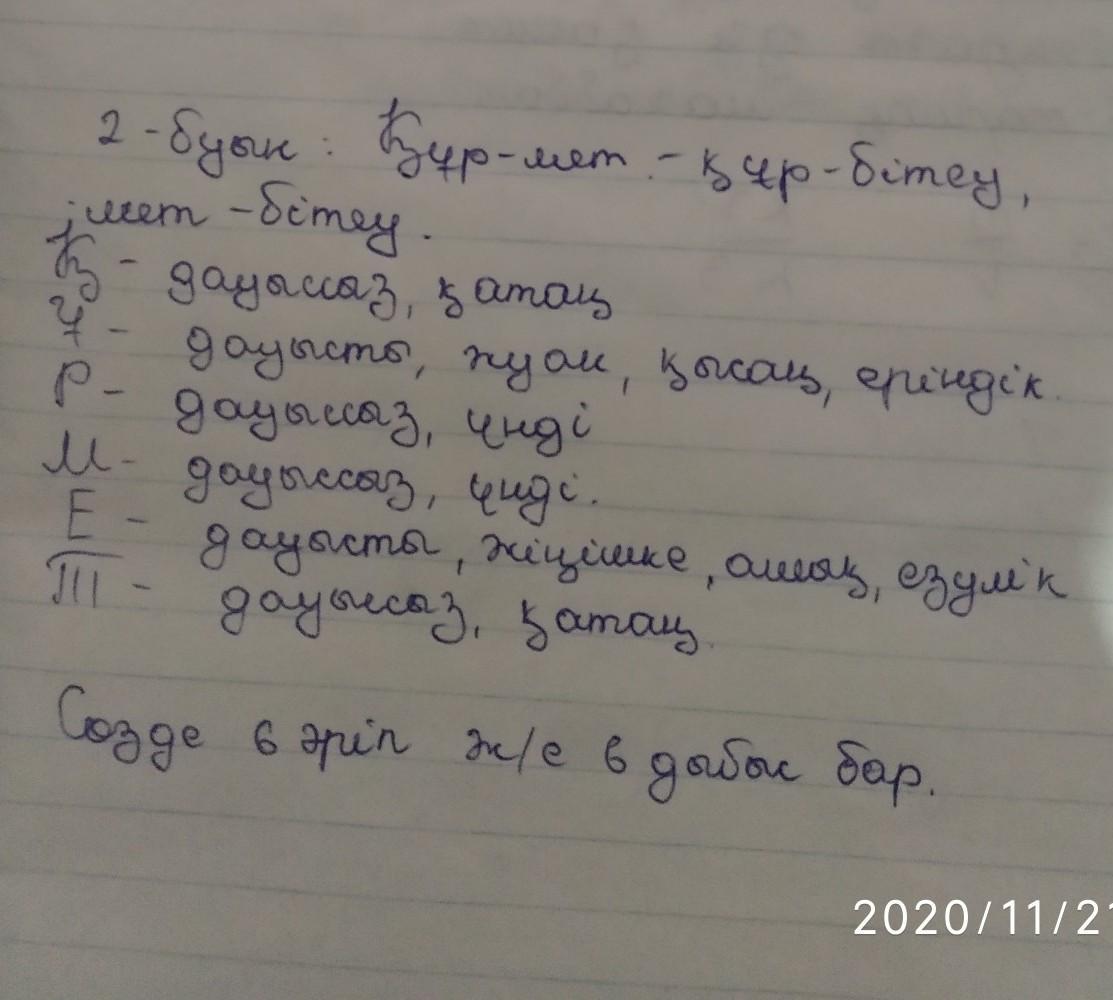 2-буын: Құр-мет - құр-бітеу,
мет-бітеу.
Қ- дауыссыз, қатаң
Ұ- дауысты, жуан, қысаң, еріндік.
Р- дауыссыз, үнді
М- дауыссыз, үнді.
Е- дауысты, жіңішке, ашық, езулік
Т- дауыссыз, қатаң.
Сөзде 6 әріп ж/е 6 дыбыс бар.
2020/11/21